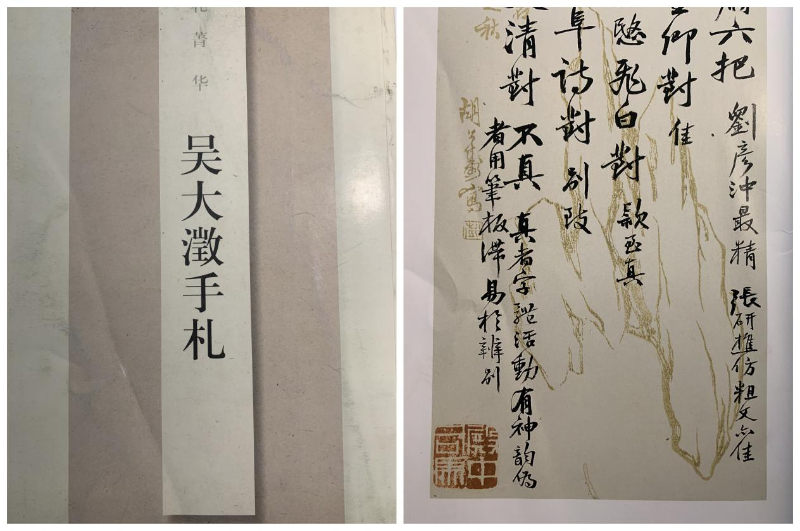 菁华
吴大澂手札
六把 劉彦沖最精 張研樵仿粗文亦佳
仰對 佳
愍飛白對 款真
阜詩對 別
清對 不真 真者字體活動有神韵偽
者用筆板滞易於辨別